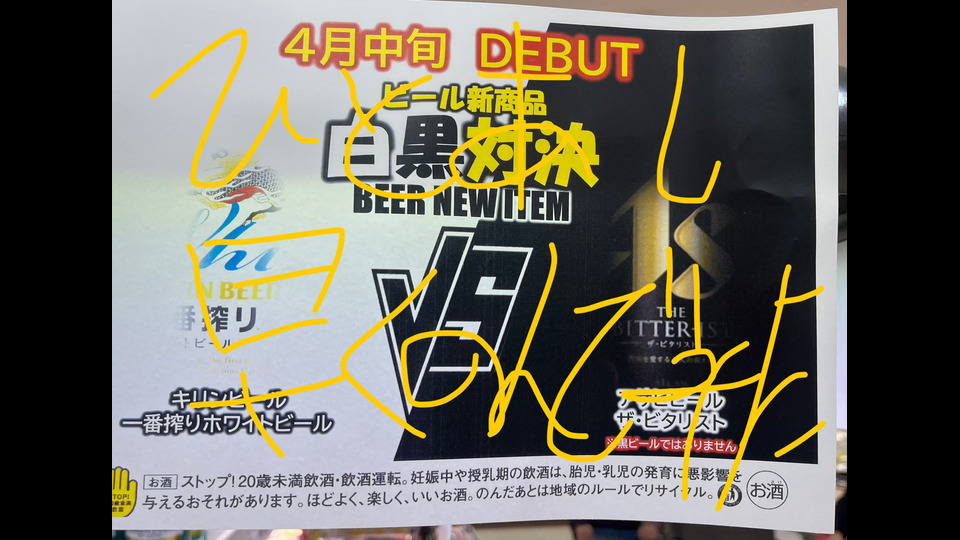 4月中旬 DEBUT
ビール新商品
白黒対決
BEER NEW ITEM
VS
一番搾り
ホワイトビール
THE
BITTER-IST
ザ・ビタリスト
キリンビール
一番搾りホワイトビール
アサヒビール
ザ・ビタリスト
※黒ビールではありません
お酒 ストップ!20歳未満飲酒・飲酒運転。妊娠中や授乳期の飲酒は、胎児・乳児の発育に悪影響を
与えるおそれがあります。ほどよく、楽しく、いいお酒。のんだあとは地域のルールでリサイクル。
お酒
ひと足し
早くのんでみた